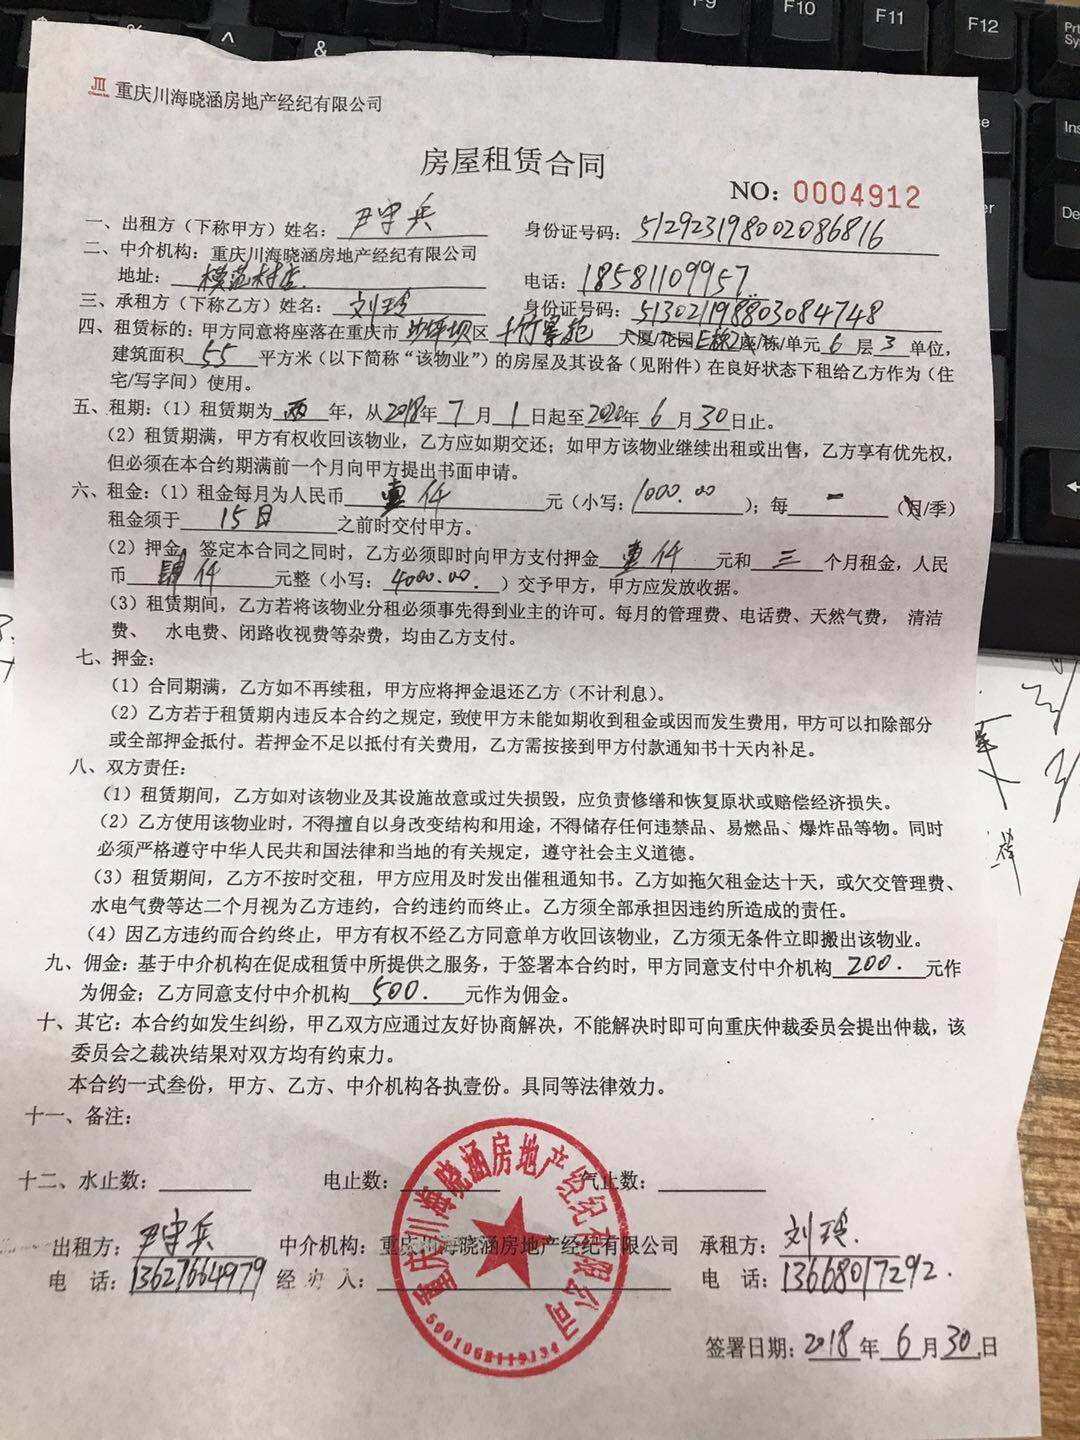 重庆川海晓涵房地产经纪有限公司
房屋租赁合同
NO: 0004912
一、出租方（下称甲方）姓名：尹守兵 身份证号码：512923198002086816
二、中介机构：重庆川海晓涵房地产经纪有限公司
地址：模范村店 电话：18581109957
三、承租方（下称乙方）姓名：刘玲 身份证号码：513021198803084748
四、租赁标的：甲方同意将座落在重庆市沙坪坝区 竹景苑 大厦/花园E栋2座/栋/单元6层3单位，
建筑面积55平方米（以下简称“该物业”）的房屋及其设备（见附件）在良好状态下租给乙方作为（住
宅/写字间）使用。
五、租期：（1）租赁期为两年，从2018年7月1日起至2020年6月30日止。
（2）租赁期满，甲方有权收回该物业，乙方应如期交还；如甲方该物业继续出租或出售，乙方享有优先权，
但必须在本合约期满前一个月向甲方提出书面申请。
六、租金：（1）租金每月为人民币壹仟元（小写：1000.00）；每一（月/季）
租金须于15日之前时交付甲方。
（2）押金 签定本合同之同时，乙方必须即时向甲方支付押金壹仟元和三个月租金，人民
币肆仟元整（小写：4000.00.）交予甲方，甲方应发放收据。
（3）租赁期间，乙方若将该物业分租必须事先得到业主的许可。每月的管理费、电话费、天然气费， 清洁
费、 水电费、闭路收视费等杂费，均由乙方支付。
七、押金：
（1）合同期满，乙方如不再续租，甲方应将押金退还乙方（不计利息）。
（2）乙方若于租赁期内违反本合约之规定，致使甲方未能如期收到租金或因而发生费用，甲方可以扣除部分
或全部押金抵付。若押金不足以抵付有关费用，乙方需按接到甲方付款通知书十天内补足。
八、双方责任：
（1）租赁期间，乙方如对该物业及其设施故意或过失损毁，应负责修缮和恢复原状或赔偿经济损失。
（2）乙方使用该物业时，不得擅自以身改变结构和用途，不得储存任何违禁品、易燃品、爆炸品等物。同时
必须严格遵守中华人民共和国法律和当地的有关规定，遵守社会主义道德。
（3）租赁期间，乙方不按时交租，甲方应用及时发出催租通知书。乙方如拖欠租金达十天，或欠交管理费、
水电气费等达二个月视为乙方违约，合约违约而终止。乙方须全部承担因违约所造成的责任。
（4）因乙方违约而合约终止，甲方有权不经乙方同意单方收回该物业，乙方须无条件立即搬出该物业。
九、佣金：基于中介机构在促成租赁中所提供之服务，于签署本合约时，甲方同意支付中介机构200.元作
为佣金；乙方同意支付中介机构500.元作为佣金。
十、其它：本合约如发生纠纷，甲乙双方应通过友好协商解决，不能解决时即可向重庆仲裁委员会提出仲裁，该
委员会之裁决结果对双方均有约束力。
本合约一式叁份，甲方、乙方、中介机构各执壹份。具同等法律效力。
十一、备注：
十二、水止数： 电止数： 气止数：
出租方：尹守兵 中介机构：重庆川海晓涵房地产经纪有限公司 承租方：刘玲.
电 话：13627664979 经办人： 电 话：13668017292.
重庆川海晓涵房地产经纪有限公司
签署日期：2018年6月30日
F9
F10
F11
F12